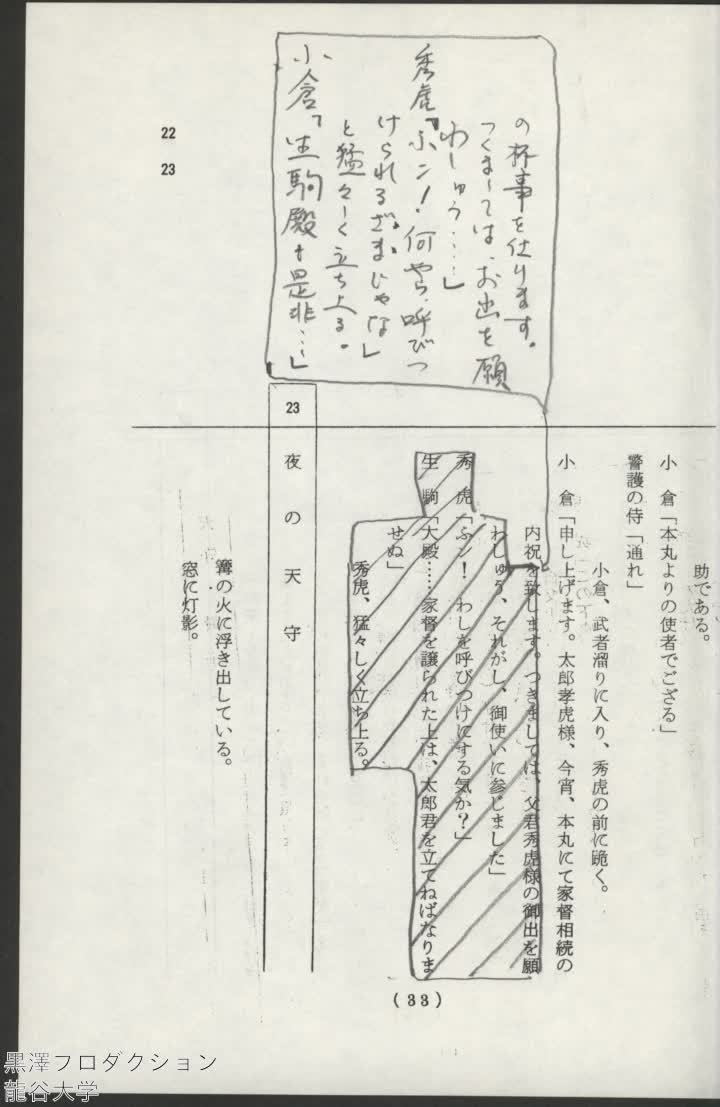 の杯事を仕ります。
つくましては、お出を願
わしゅう……」
秀虎「ふン！何やら、呼びつ
けられるざまじゃな」
と猛々しく立ち上る。
小倉「生駒殿も是非…」
22
23
助である。
小倉「本丸よりの使者でござる」
警護の侍「通れ」
小倉、武者溜りに入り、秀虎の前に跪く。
小倉「申し上げます。太郎孝虎様、今宵、本丸にて家督相続の
内祝を致します。つきましては、父君秀虎様の御出を願
わしゅう、それがし、御使いに参じました」
秀虎「ふン！わしを呼びつけにする気か？」
生駒「大殿……家督を譲られた上は、太郎君を立てねばなりま
せぬ」
秀虎、猛々しく立ち上る。
23
夜の天守
篝の火に浮き出している。
窓に灯影。
(33)
黒澤プロダクション
龍谷大学